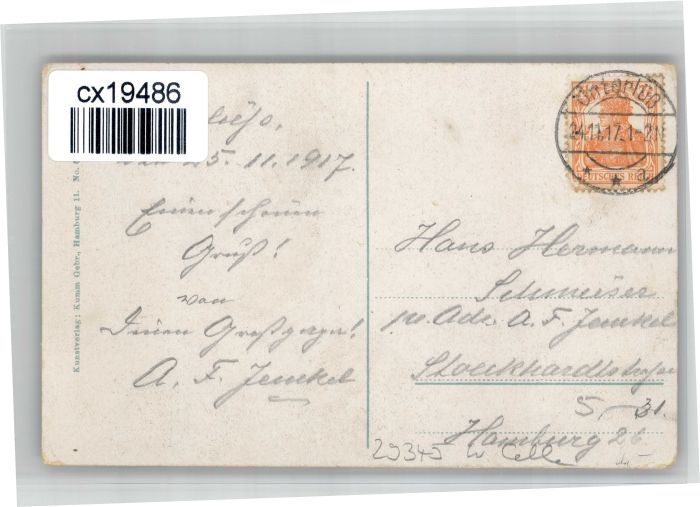 cx19486
25. 11. 1917.
Einen schönen
Gruß!
von
Deinen Großpapa!
A. F. Jenckel
Kunstverlag: Kumm Gebr., Hamburg 11. No.
Unterlüß
24.11.17.1-2N
* * a
DEUTSCHES REICH
Hans Hermann
Schmeiser
pr. Adr. A. F. Jenckel
Stoeckhardtstraße
Hamburg 26
29345 Celle